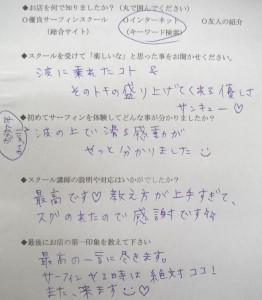 ◆お店を何で知りましたか？（丸で囲んでください）
○優良サーフィンスクール ○インターネット ○友人の紹介
（総合サイト） （キーワード検索）
◆スクールを受けて「楽しいな」と思った事をお聞かせください。
波に乗れたコト &
そのトキの盛り上げてくれる優しさ
サンキュー♡
◆初めてサーフィンを体験してどんな事が分かりましたか？
波の上で滑る感動が
やっと分かりました
◆スクール講師の説明や対応はいかがでしたか？
最高です♡ 教え方が上手すぎて、
スグのれたので感謝です
◆最後にお店の第一印象を教えて下さい
最高の一言に尽きます。
サーフィンやる時は絶対ココ！
また、来ます